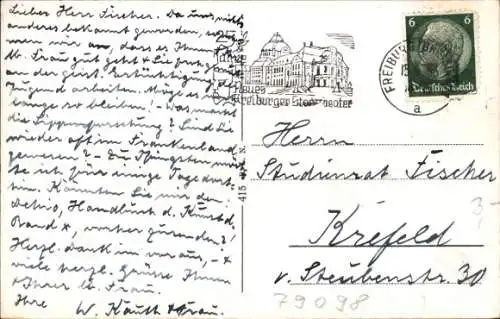 Lieber Herr Fischer. Da uns nichts
anderes bekannt geworden, so neh-
men wir an, dass es Ihnen u.
Ihr. Frau gut geht & Sie frisch
an der geist. Ertüchtigung der
Jugend arbeiten. Möge es noch
lange so bleiben! Was macht
die Sippenforschung? Sind Sie
wieder oft im Frankenland
gewesen? – Zu Pfingsten möch-
te ich für einige Tage dort-
hin. Könnten Sie mir den
Dehio, Handbuch d. Kunstd.
Band *, vorher zusenden?
Herzl. Dank im voraus, – &
viele herzl. Grüsse Ihnen
& Ihrer lb. Frau.
Ihre W. Kauth & Frau.
Jahre
neues
Freiburger Stadttheater
FREIBURG (BRSG)
a
6 6
Deutsches Reich
415
Herrn
Studienrat Fischer
Krefeld
v. Steubenstr. 30
3-
79098